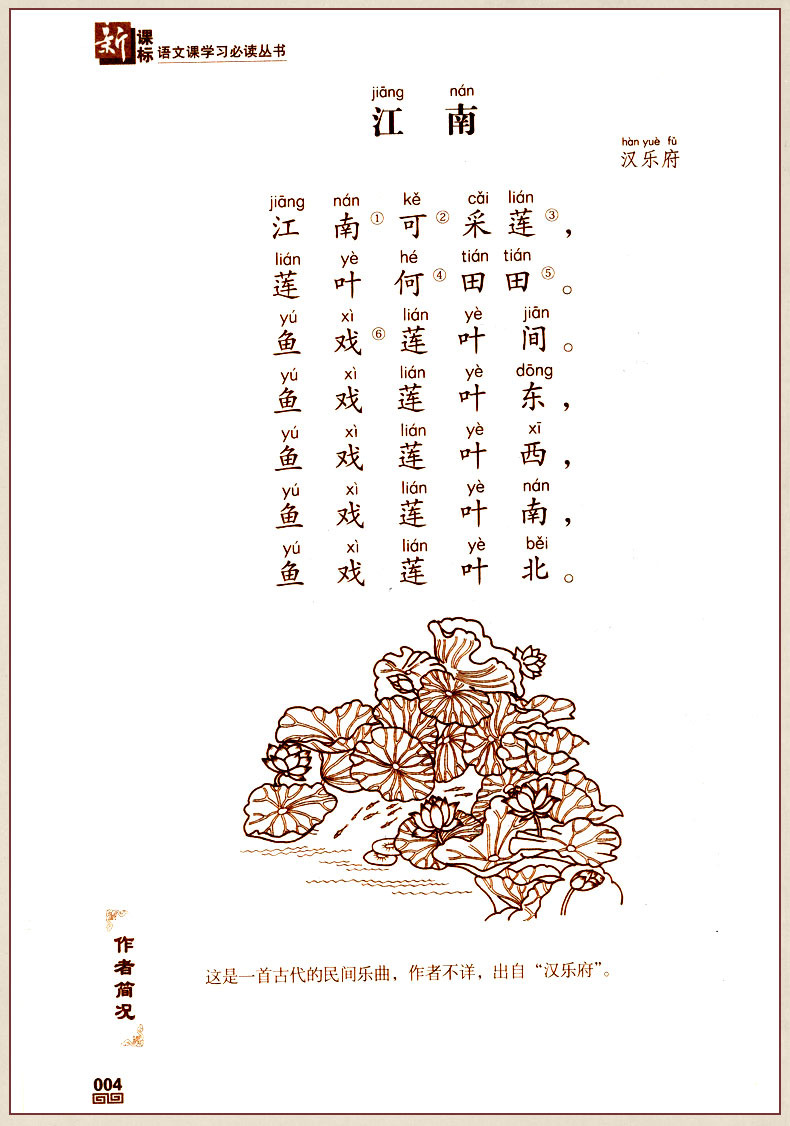 新课标 语文课学习必读丛书
jiāng nán
江 南
hàn yuè fǔ
汉乐府
jiāng nán kě cǎi lián
江 南① 可② 采 莲③，
lián yè hé tián tián
莲 叶 何④ 田 田⑤。
yú xì lián yè jiān
鱼 戏⑥ 莲 叶 间。
yú xì lián yè dōng
鱼 戏 莲 叶 东，
yú xì lián yè xī
鱼 戏 莲 叶 西，
yú xì lián yè nán
鱼 戏 莲 叶 南，
yú xì lián yè běi
鱼 戏 莲 叶 北。
作者简况
这是一首古代的民间乐曲，作者不详，出自“汉乐府”。
004